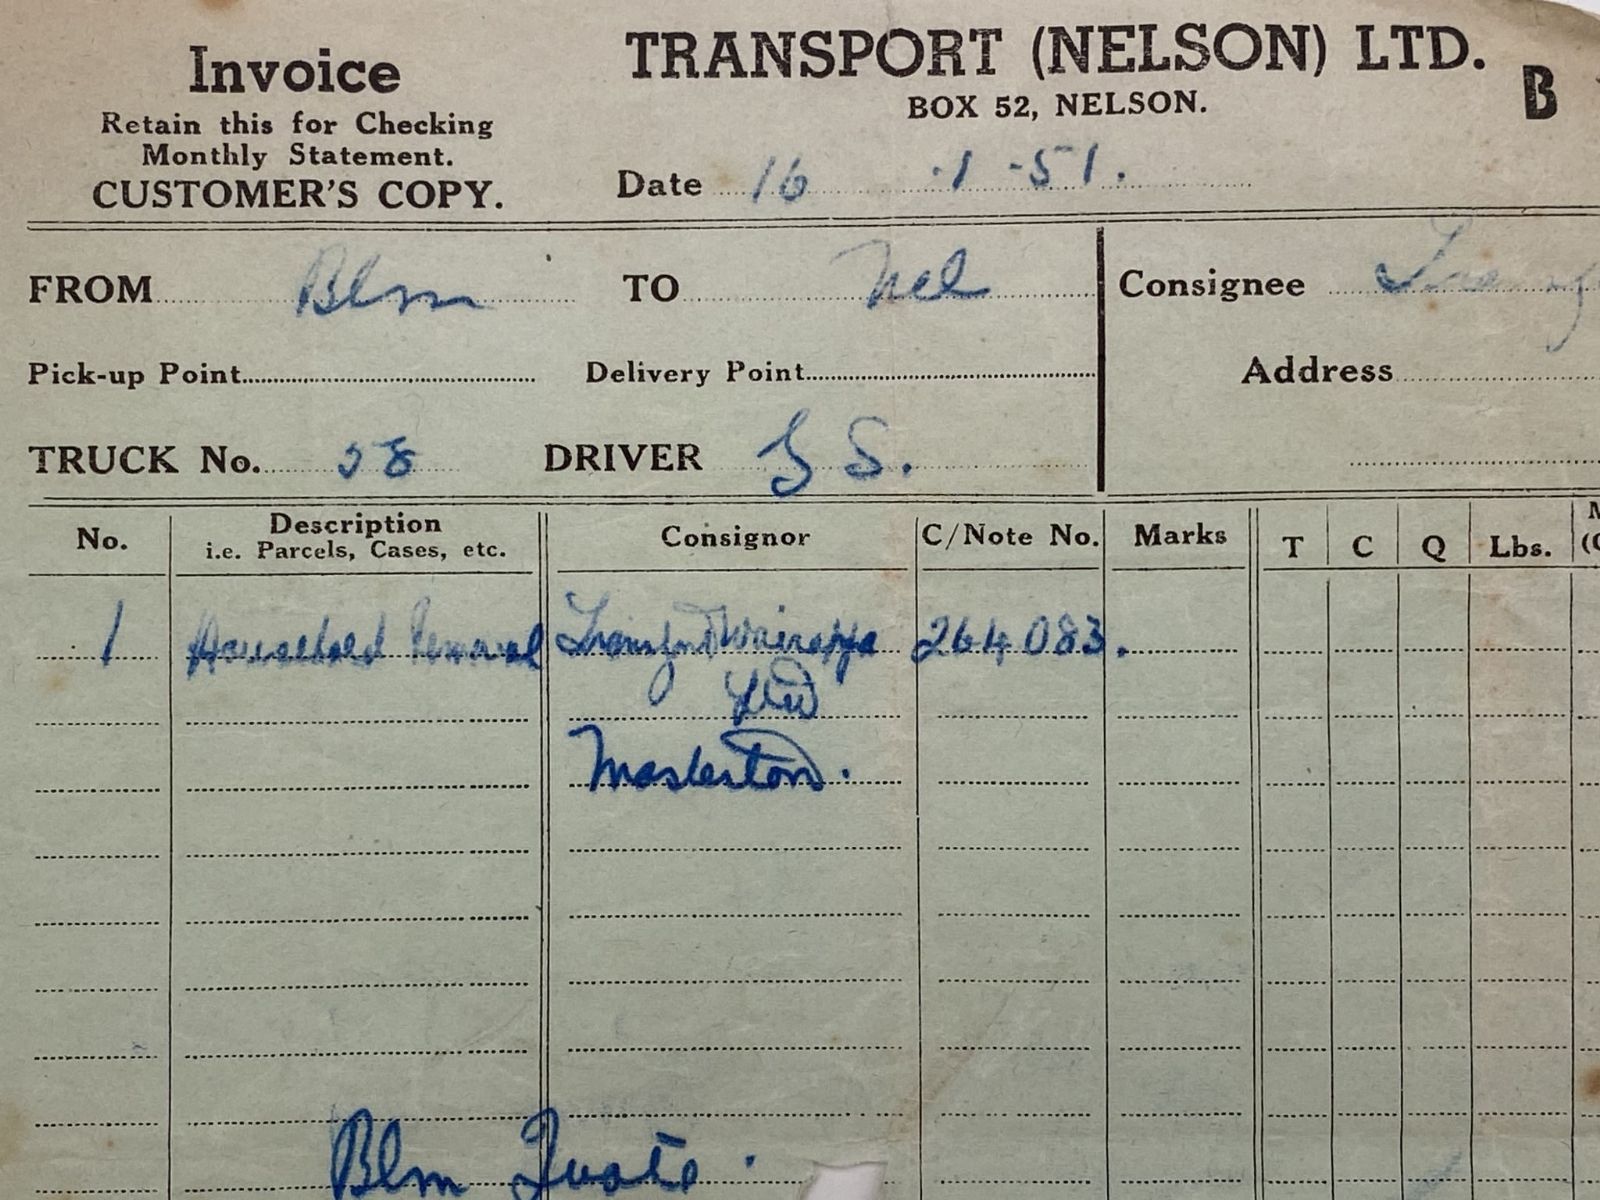 Invoice
Retain this for Checking
Monthly Statement.
CUSTOMER'S COPY.
TRANSPORT (NELSON) LTD.
BOX 52, NELSON.
B
Date 16 .1 -51.
FROM Blm TO Nel
Pick-up Point Delivery Point
TRUCK No. 58 DRIVER S.
Consignee
Address
No. Description Consignor C/Note No. Marks T C Q Lbs.
i.e. Parcels, Cases, etc.
1 Household Removal Transport Wairarapa 264083.
Ltd
Masterton.
Blm Quote.